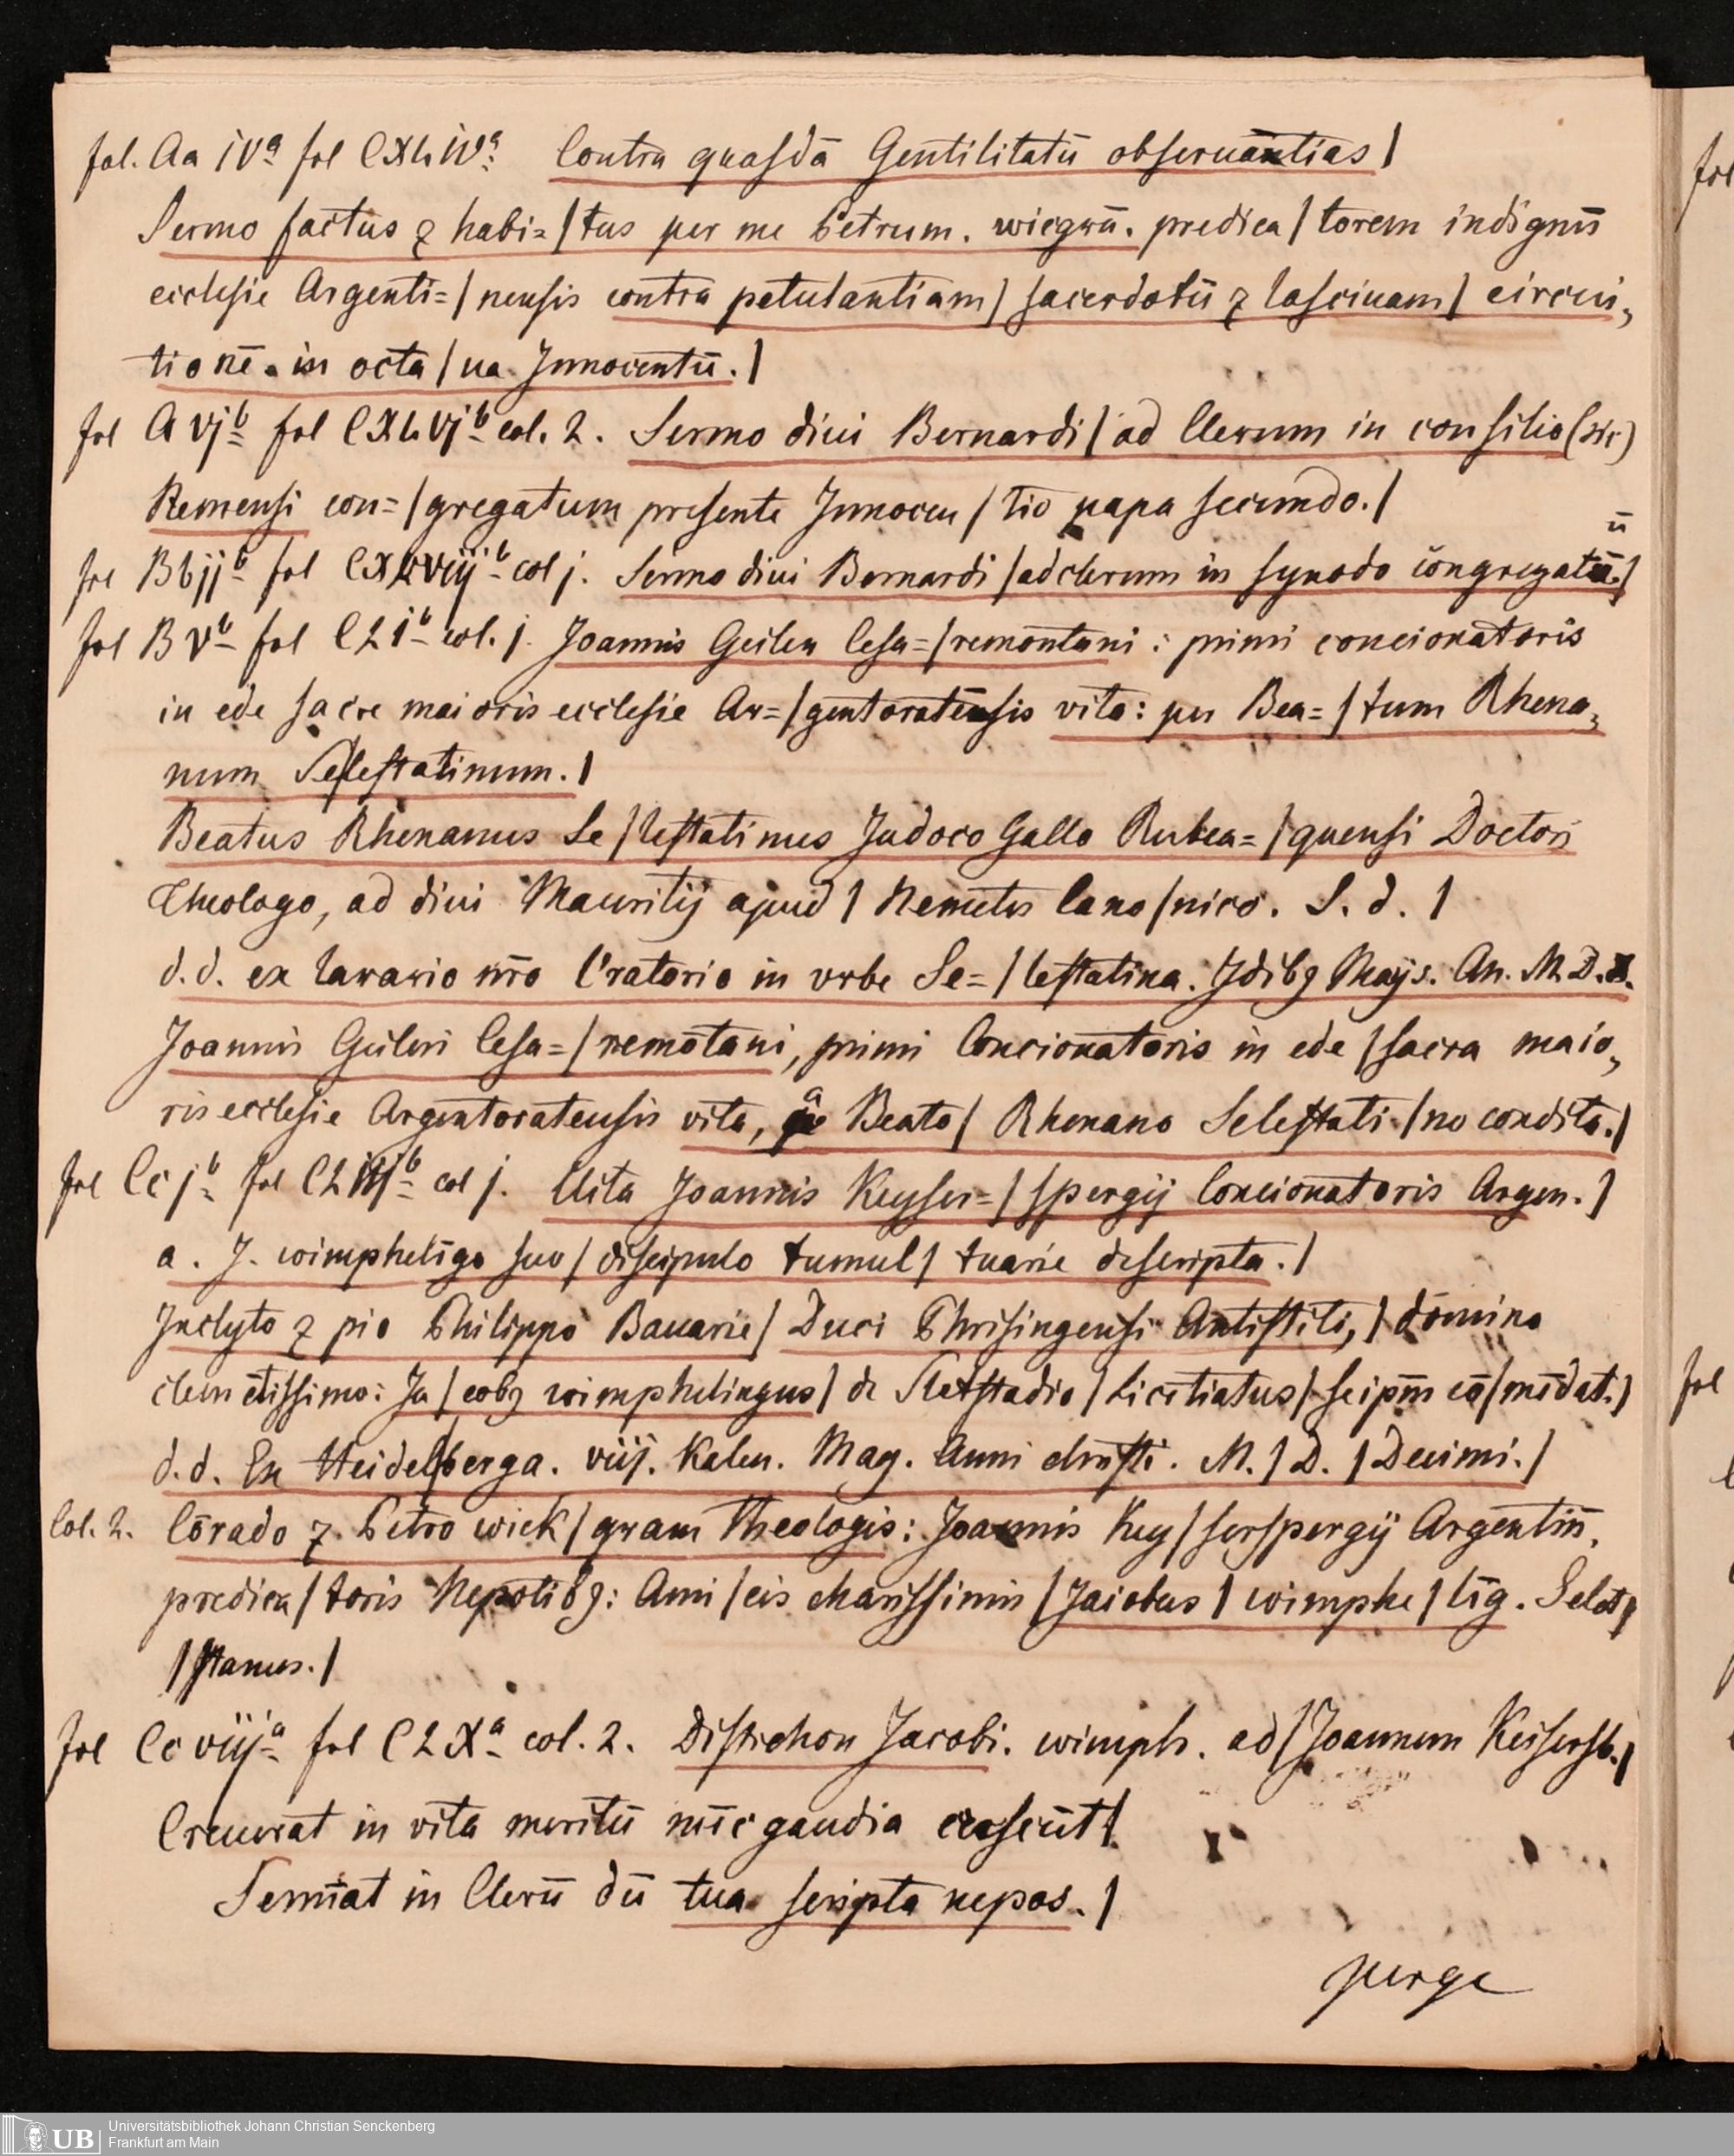 fol. Aa ivª fol CXLivª. Contra quasdā Gentilitatū obseruantias |
Sermo factus ⁊ habi= | tus per me Petrum. wicgrā. predica | torem indignū
ecclesie Argenti= | nensis contra petulantiam | sacerdotū ⁊ lasciuam | circui,
tionē. in octa | ua Innocentū. |
fol A vjᵇ fol CXLvjᵇ col. 2. Sermo diui Bernardi | ad Clerum in consilio (sic)
Remensi con= | gregatum presente Innocen | tio papa secundo. |
fol Bbijᵇ fol CXLviijᵇ col j. Sermo diui Bernardi | ad clerum in synodo cōngregatū. |
ū
fol B vᵇ fol CLiᵇ col. j. Joannis Geiler Cesa= | remontani : primi concionatoris
in ede sacre maioris ecclesie Ar= | gentoratensis vita: per Bea= | tum Rhena,
num Selestatinum. |
Beatus Rhenanus Se | lestatinus Judoco Gallo Rubea= | quensi Doctori
Theologo, ad diui Mauritij apud | Nemetes Cano | nico. S. d. |
d. d. ex larario nr̄o l'ratorio in vrbe Se= | lestatina. Jdibȝ Maijs. An. M. D. X.
Joannis Geileri Cesa= | remōtani, primi Concionatoris in ede | sacra maio,
ris ecclesie Argentoratensis vita, a Beato | Rhenano Selestati | no condita. |
fol Cc jᵇ fol CLiiijᵇ col j. Uita Joannis Keyser= | spergij Concionatoris Argen. |
a. J. wimphelīgo suo | discipulo tumul | tuarie descripta. |
Inclyto ⁊ pio Philippo Bauarie | Duci Phrisingensi Antistiti, | domino
clemētissimo: Ja | cobȝ wimphelingus | de Sletstadio | Licētiatus | seipm̄ cō | mēdat. |
d. d. Ex Heidelberga. viij. Kalen. Mag. Anni christi. M. | D. | Decimi. |
Col. 2. Cōrado ⁊ Petro wick | gram Theologis: Joannis Key | serspergij Argentiñ.
predica | toris Nepotibȝ: Ami | cis charissimis | Jacobus | wimphe | līg. Selet,
| stanus. |
fol Cc viijª fol CLXª col. 2. Distichon Jacobi. wimph. ad | Joannem Keisersb. |
Creuerat in vita meritū nūc gaudia crescūt |
Seruiat in Clerū dū tua scripta nepos. |
perge
Universitätsbibliothek Johann Christian Senckenberg
UB
Frankfurt am Main